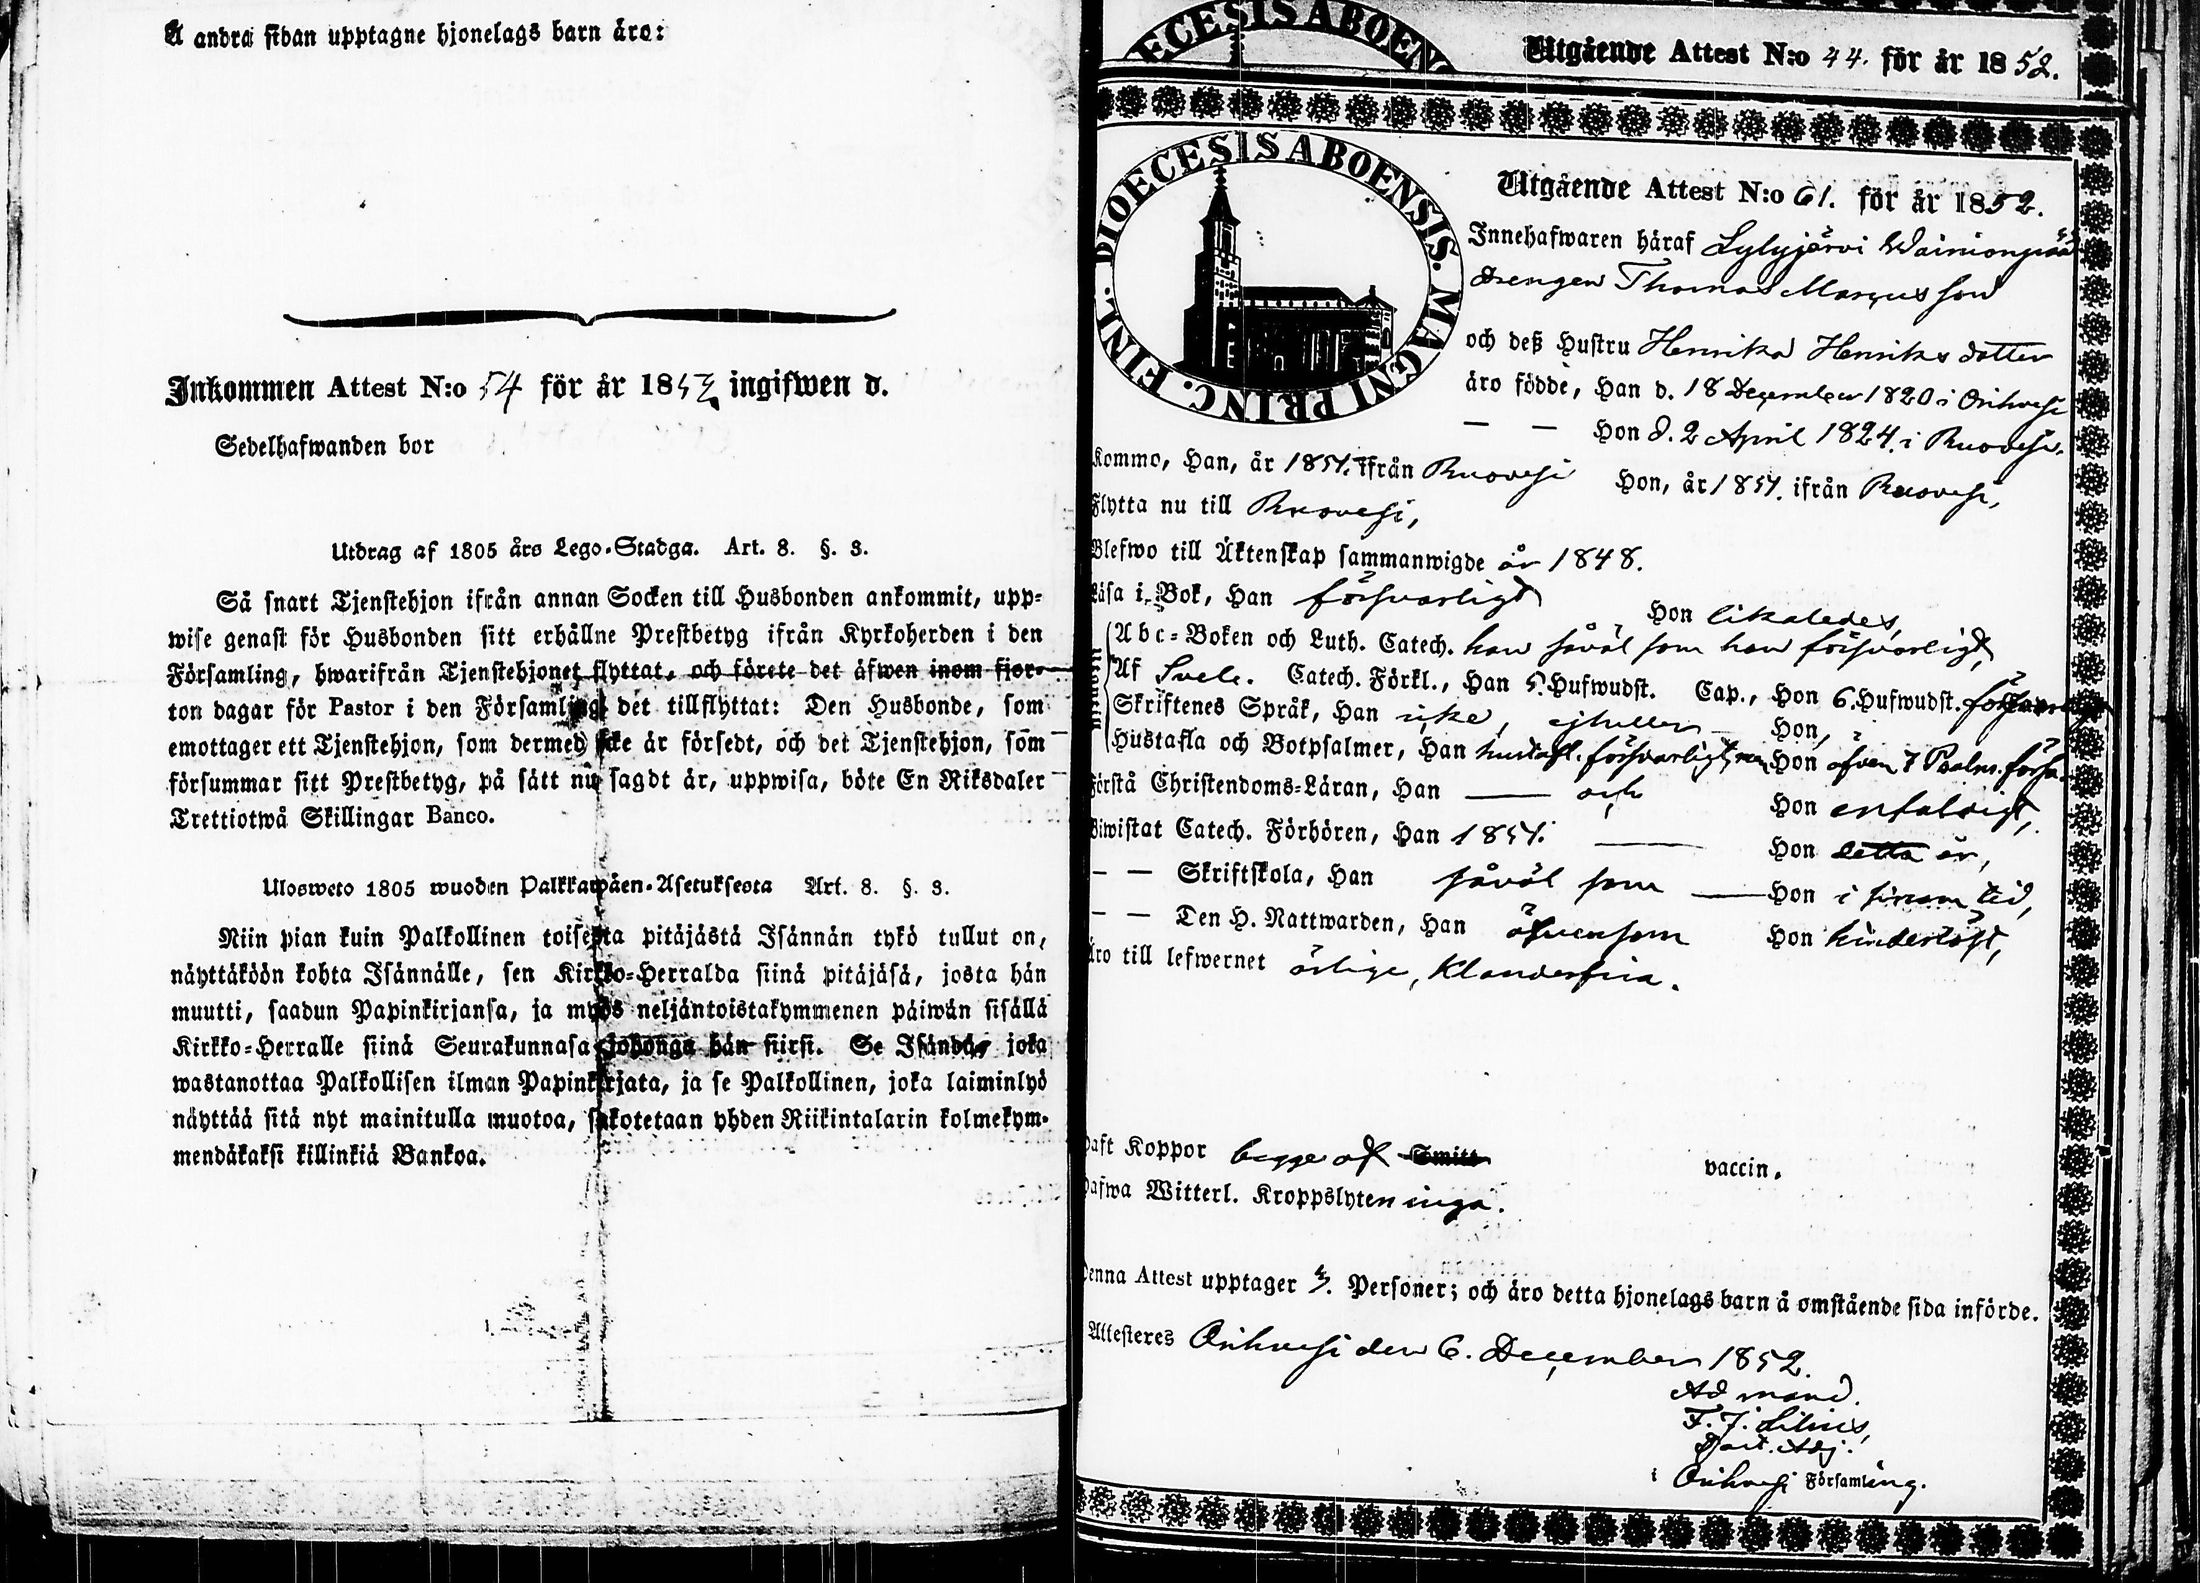 Å andra sidan upptagne hjonelags barn äro:
Inkommen Attest N:o 54 för år 1852 ingifwen d.
Sedelhafwanden bor
Utdrag af 1805 års Lego-Stadga. Art. 8. §. 3.
Så snart Tjenstehjon ifrån annan Socken till Husbonden ankommit, upp-
wise genast för Husbonden sitt erhållne Prestbetyg ifrån Kyrkoherden i den
Församling, hwarifrån Tjenstehjonet flyttat, och förete det äfwen inom fjor-
ton dagar för Pastor i den Församling det tillflyttat: Den Husbonde, som
emottager ett Tjenstehjon, som dermed icke är försedt, och det Tjenstehjon, som
försummar sitt Prestbetyg, på sätt nu sagdt är, uppwisa, böte En Riksdaler
Trettiotwå Skillingar Banco.
Ulosweto 1805 wuoden Palkkawäen-Asetuksesta Art. 8. §. 3.
Niin pian kuin Palkollinen toisesta pitäjästä Isännän tykö tullut on,
näyttäköön kohta Isännälle, sen Kirkko-Herralda siinä pitäjäsä, josta hän
muutti, saadun Papinkirjansa, ja myös neljäntoistakymmenen päiwän sisällä
Kirkko-Herralle siinä Seurakunnasa johonga hän siirsi. Se Isändä, joka
wastanottaa Palkollisen ilman Papinkirjata, ja se Palkollinen, joka laiminlyö
näyttää sitä nyt mainitulla muotoa, sakotetaan yhden Riikintalarin kolmekym-
mendäkaksi killinkiä Bankoa.
ECESIS ABOENS
Utgående Attest N:o 44. för år 1852.
DIOECESIS ABOENSIS. MAGNI PRINC. FINL.
Utgående Attest N:o 61. för år 1852.
Innehafwaren häraf Lylyjärvi Wainionpää
drengen Thomas Marcusson
och deß Hustru Henrika Henriksdotter
äro födde, Han d. 18 December 1820 i Orihvesi
— — Hon d. 2 April 1824. i Ruovesi.
Kommo, Han, år 1851. ifrån Ruovesi Hon, år 1851. ifrån Ruovesi,
Flytta nu till Ruovesi,
Blefwo till Äktenskap sammanwigde år 1848.
Läsa i Bok, Han försvarligt Hon likaledes,
Abc-Boken och Luth. Catech. han såväl som hon försvarligt,
Af Svebe. Catech. Förkl., Han 5. Hufwudst. Cap., Hon 6. Hufwudst.
Skriftenes Språk, Han icke, ejheller Hon,
Hustafla och Botpsalmer, Han hustafl. försvarligt, Hon äfven 7 Psalm.försv.
Förstå Christendoms-Läran, Han — och Hon enfaldigt,
Biwistat Catech. Förhören, Han 1851. — Hon detta år,
— — Skriftskola, Han såväl som — Hon i sinom tid,
— — Den H. Nattwarden, Han äfvensom Hon hinderlöst,
Äro till lefwernet ärlige, Klanderfria.
Haft Koppor begge af Smitt vaccin.
Hafwa Witterl. Kroppslyten inga.
Denna Attest upptager Personer; och äro detta hjonelags barn å omstående sida införde.
Attesteres Orihvesi den 6. December 1852.
Ad mand.
F. J. Lilius,
Past. Adj.
i Orihvesi Församling.